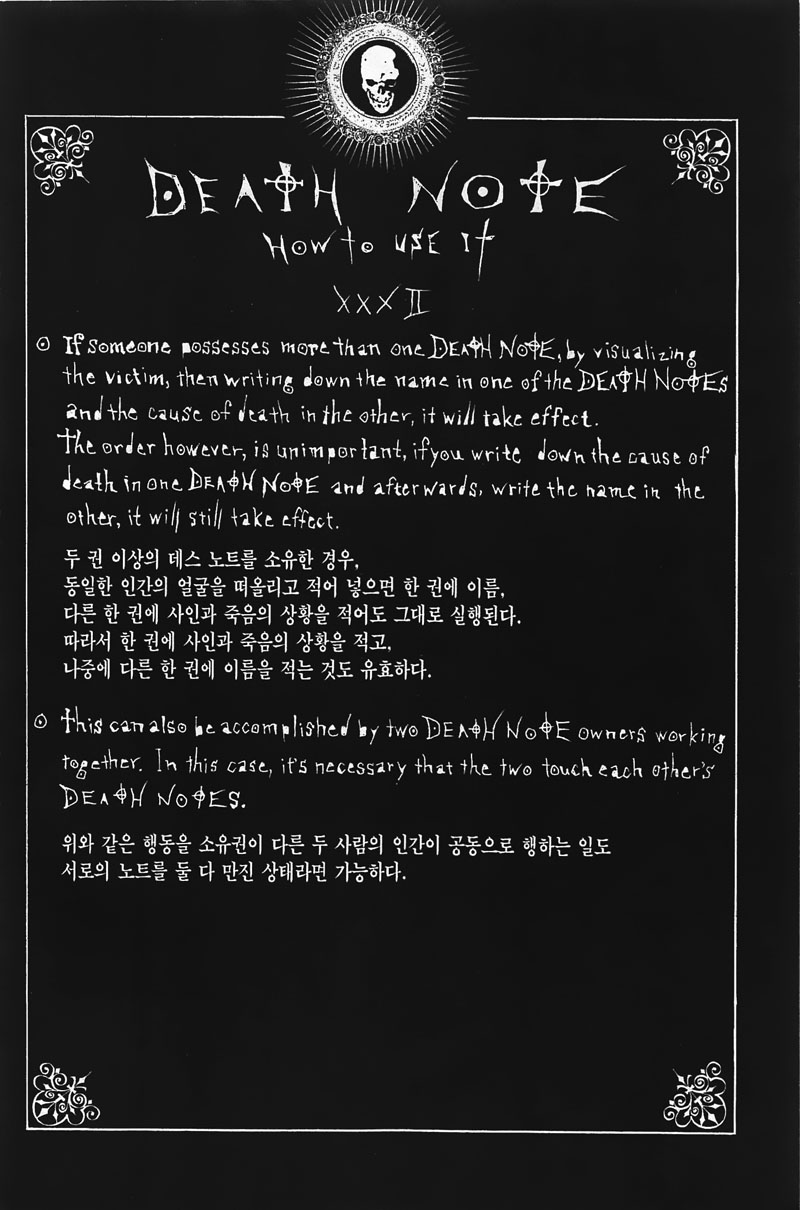 DEATH NOTE
HOW to USE It
XXXII
If someone possesses more than one DEATH NOTE, by visualizing
the victim, then writing down the name in one of the DEATH NOTES
and the cause of death in the other, it will take effect.
the order however, is unimportant, if you write down the cause of
death in one DEATH NOTE and afterwards, write the name in the
other, it will still take effect.
두 권 이상의 데스 노트를 소유한 경우,
동일한 인간의 얼굴을 떠올리고 적어 넣으면 한 권에 이름,
다른 한 권에 사인과 죽음의 상황을 적어도 그대로 실행된다.
따라서 한 권에 사인과 죽음의 상황을 적고,
나중에 다른 한 권에 이름을 적는 것도 유효하다.
this can also be accomplished by two DEATH NOTE owners working
together. In this case, it's necessary that the two touch each other's
DEATH NOTES.
위와 같은 행동을 소유권이 다른 두 사람의 인간이 공동으로 행하는 일도
서로의 노트를 둘 다 만진 상태라면 가능하다.